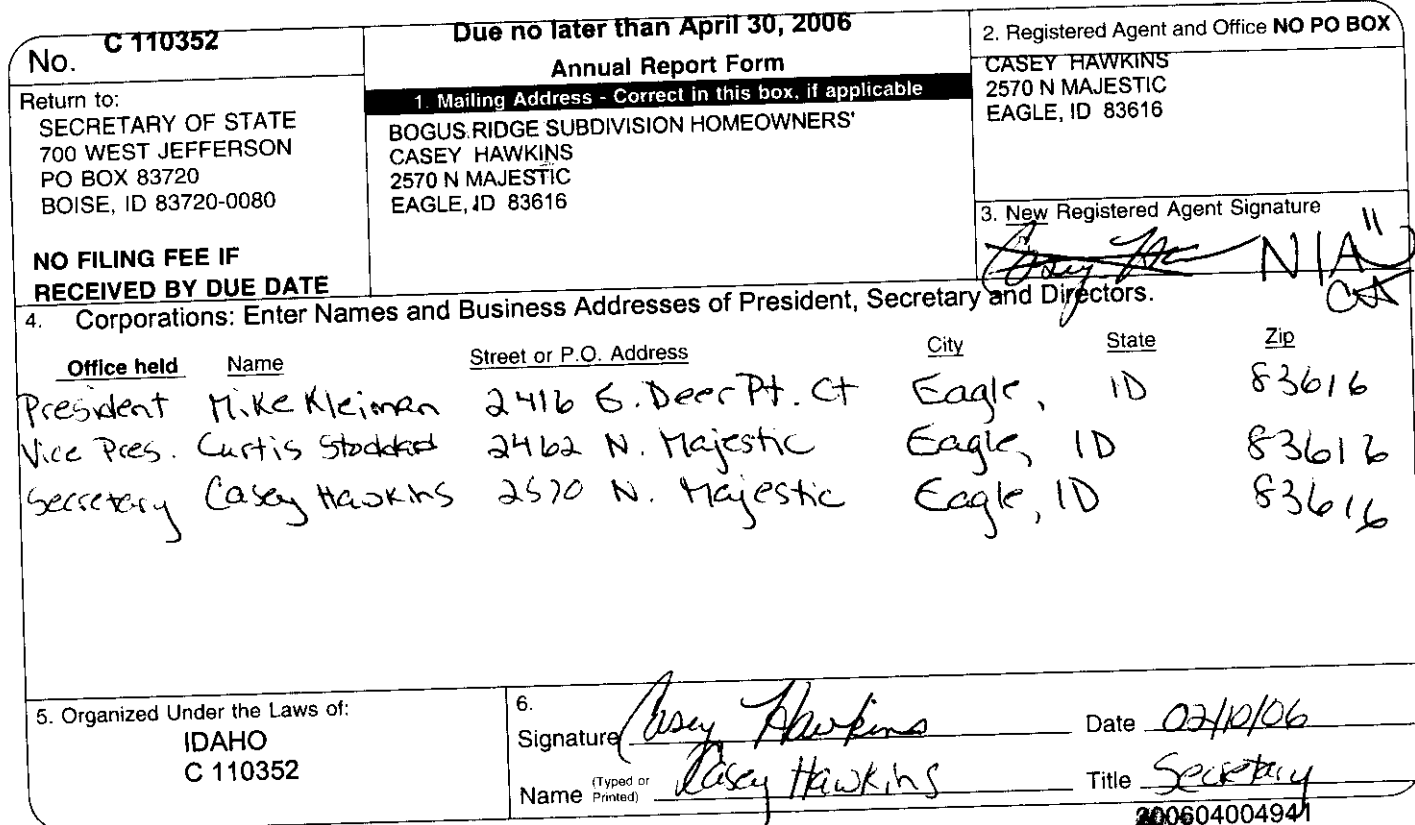 No. C 110352
Due no later than April 30, 2006
Annual Report Form
Return to:
SECRETARY OF STATE
700 WEST JEFFERSON
PO BOX 83720
BOISE, ID 83720-0080
NO FILING FEE IF
RECEIVED BY DUE DATE
1. Mailing Address - Correct in this box, if applicable
BOGUS RIDGE SUBDIVISION HOMEOWNERS'
CASEY HAWKINS
2570 N MAJESTIC
EAGLE, ID 83616
2. Registered Agent and Office NO PO BOX
CASEY HAWKINS
2570 N MAJESTIC
EAGLE, ID 83616
3. New Registered Agent Signature
N/A
4. Corporations: Enter Names and Business Addresses of President, Secretary and Directors.
Office held Name Street or P.O. Address City State Zip
President Mike Kleiman 2416 E. Deer Pt. Ct Eagle, ID 83616
Vice Pres. Curtis Stoddard 2462 N. Majestic Eagle, ID 83616
Secretary Casey Hawkins 2570 N. Majestic Eagle, ID 83616
5. Organized Under the Laws of:
IDAHO
C 110352
6.
Signature Casey Hawkins Date 02/10/06
Name (Typed or Printed) Casey Hawkins Title Secretary
200604004941